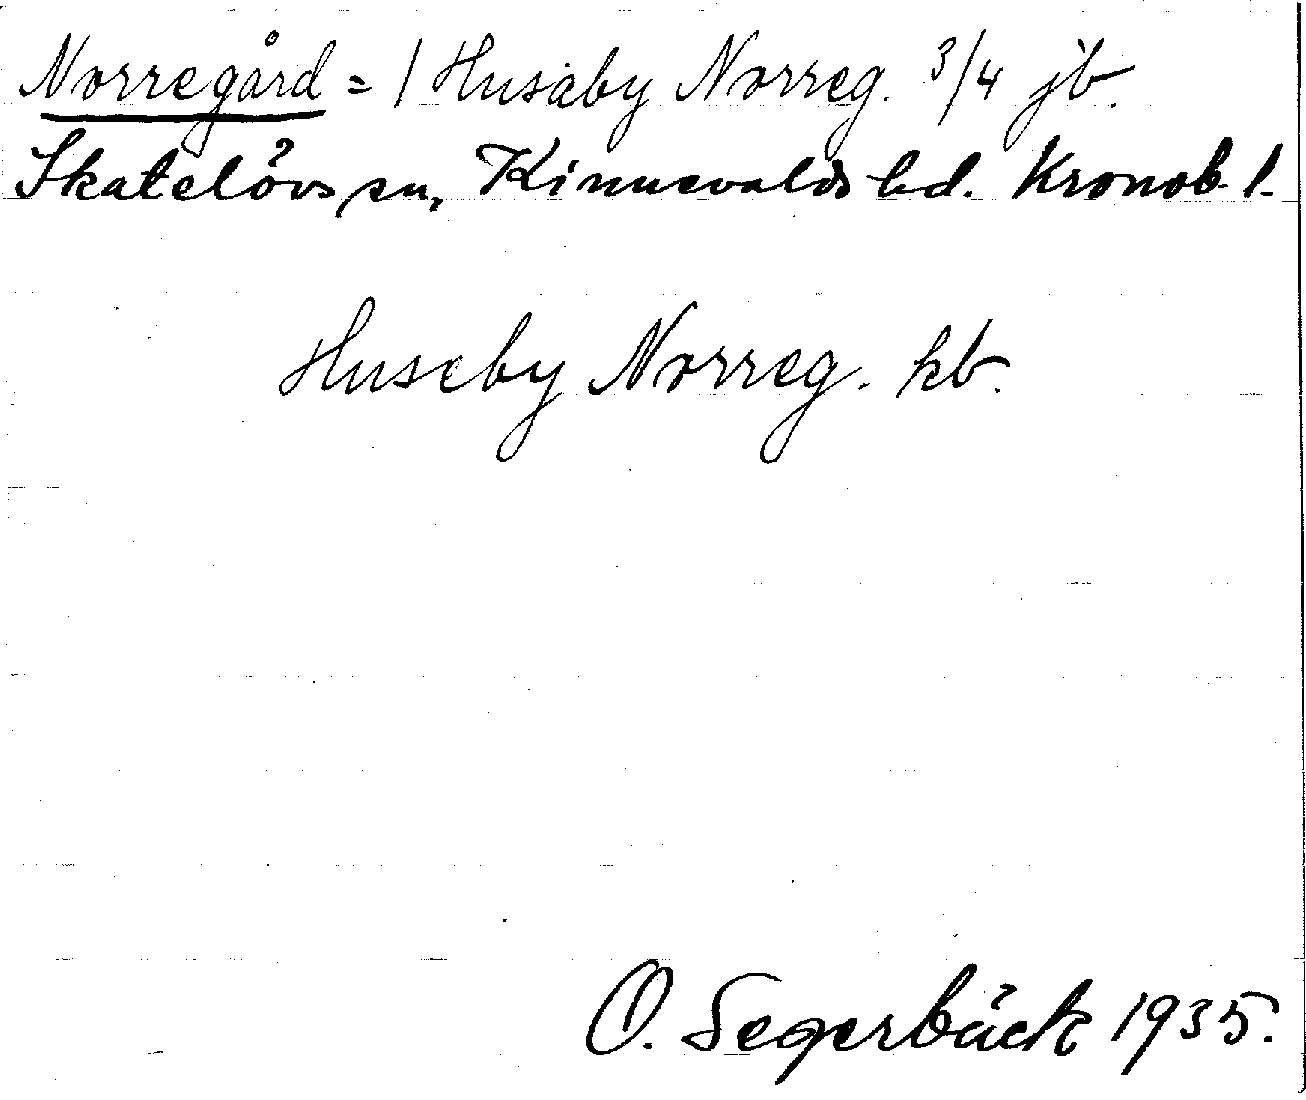 Norregård = / Husaby Norreg. 3/4 jb.
Skatelövs sn, Kinnevalds hd. Kronob. l.
Huseby Norreg. kb.
O. Segerbäck 1935.